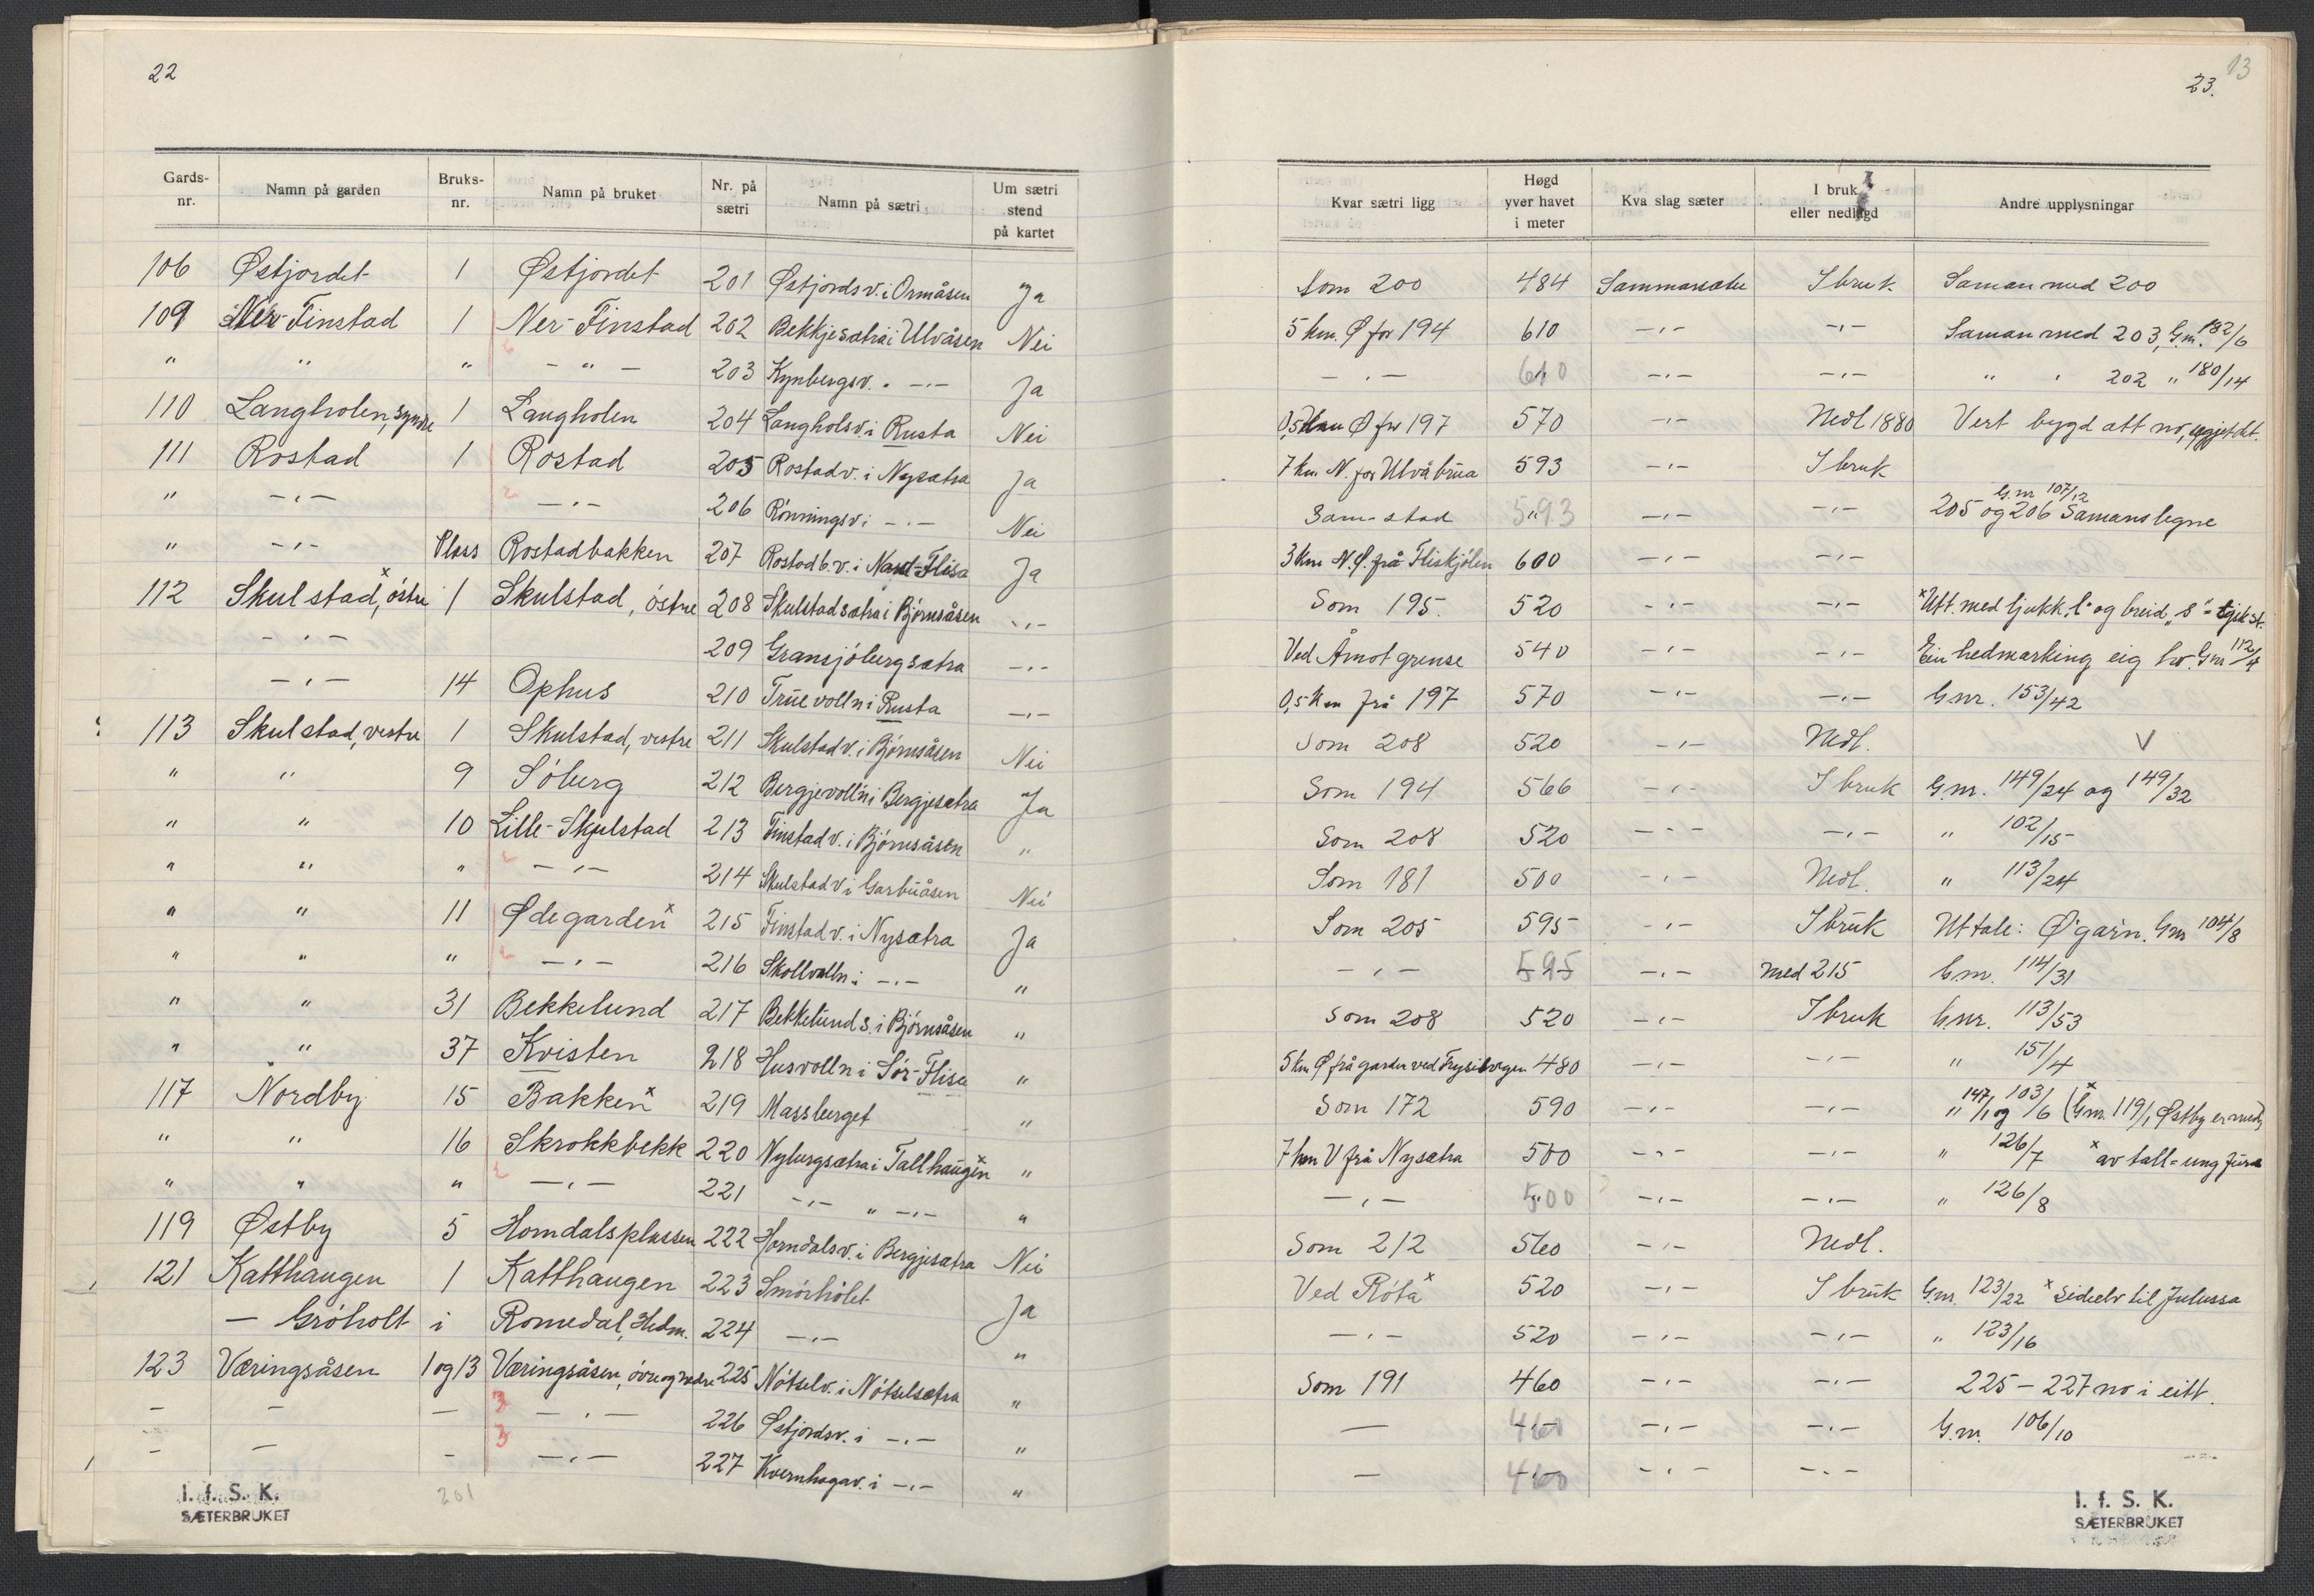 22
Gards-nr. Namn på garden Bruks-nr. Namn på bruket Nr. på sætri Namn på sætri Um sætri stend på kartet
106 Østjordet 1 Østjordet 201 Østjordsv. i Ormåsen Ja
109 Ner-Finstad 1 Ner-Finstad 202 Bekkjesætra i Ulvåsen Nei
" " " - " - 203 Kynbergsv. " -"- Ja
110 Langholen, syndre 1 Langholen 204 Langholsv. i Rusta Nei
111 Rostad 1 Rostad 205 Rostadv. i Nysætra Ja
" -"- -"- 206 Rönningsv i -"- Nei
" -"- Plass Rostadbakken 207 Rostadb.v. i Nord-Flisa Ja
112 Skulstad,x östre 1 Skulstad, östre 208 Skulstadsætra i Björnsåsen -"-
-"- 209 Gransjöbergsætra -"-
-"- 14 Ophus 210 Truevolln i Rusta -"-
113 Skulstad, vestre 1 Skulstad, vestre 211 Skulstadv. i Björnsåsen Nei
" " 9 Söberg 212 Bergjevolln i Bergjesætra Ja
" " 10 Lille-Skulstad 213 Finstadv. i Björnsåsen "
" " " -"- 214 Skulstadv i Garbuåsen Nei
" " 11 Ødegardenx 215 Finstadv. i Nysætra Ja
" " " -"- 216 Skollvolln i -"- "
" " 31 Bekkelund 217 Bekkelund s. i Björnsåsen "
" " 37 Kvisten 218 Husvolln i Sör-Flisa "
117 Nordby 15 Bakkenx 219 Massberget "
" " 16 Skrokkbekk 220 Nybergsætra i Tallhaugenx "
" " " -"- 221 -"- " -"- "
119 Østby 5 Homdalsplassen 222 Homdalsv. i Bergjesætra Nei
121 Katthaugen 1 Katthaugen 223 Smörhölet Ja
- Gröholt i Romedal, Hedm. 224 -"- "
123 Væringsåsen 1 og 13 Væringsåsen, övre og nedre 225 Nötselv. i Nötselsætra "
- - - 3 -"- 226 Østjordsv. i -"- "
- - - 3 -"- 227 Kvernhagav. i -"- "
I. f. S. K.
SÆTERBRUKET
201
13
23.
Kvar sætri ligg Høgd yver havet i meter Kva slag sæter I bruk eller nedlagd Andre upplysningar
Som 200 484 Sommarsæter I bruk Saman med 200
5 km. Ø for 194 610 -"- -"- Saman med 203, G.nr. 182/6
-"- 610 -"- -"- " " 202 " 180/14
0,5 km Ø for 197 570 -"- Nedl 1880 Vert bygd att no, uppgjet det.
7 km N. for Ulvåbrua 593 -"- I bruk
Sam-stad 593 -"- -"- 205 og 206 Samanslegne G.nr 107/12
3 km N.Ø. frå Fliskjölen 600 -"- -"-
Som 195. 520 -"- -"- x Utt. med tjukk "l" og breid "s"
Ved Åmot grense 540 -"- -"- Ein hedmarking eig ho. Gnr 112/4
0,5 km frå 197 570 -"- -"- Gnr. 153/42
Som 208 520 -"- Nedl. V
Som 194 566 -"- I bruk G.nr. 149/24 og 149/32
Som 208 520 -"- -"- " 102/15
Som 181 500 -"- Nedl. " 113/24
Som 205 595 -"- I bruk Uttale: Ø'garn. Gnr 104/8
-"- 595 -"- med 215 G.nr. 114/31
Som 208 520 -"- I bruk Gnr. 113/53
5 km Ø frå garden ved Trysilvegen 480 -"- -"- " 151/4
Som 172 590 -"- -"- " 147/1 og 103/6 (x Gnr. 119/1, Østby er med)
7 km V frå Nysætra 500 -"- -"- " 126/7 x av tall = ung furu
-"- 500 -"- -"- " 126/8
Som 212 560 -"- Nedl.
Ved Rötax 520 -"- I bruk G.nr. 123/22 x sideelv til Julussa
-"- 520 -"- -"- " 123/16
Som 191 460 -"- -"- 225 - 227 no i eitt.
— 460 -"- -"- G.nr. 106/10
— 460 -"- -"-
I. f. S. K.
SÆTERBRUKET